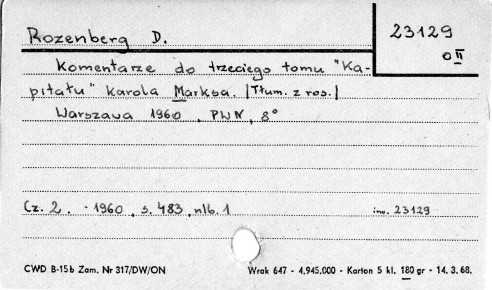 Rozenberg D.
23129
0 II
Komentarze do trzeciego tomu "Ka-
pitału" Karola Marksa. |Tłum. z ros.|
Warszawa 1960, PWN, 8°
Cz. 2. - 1960, s. 483, nlb. 1
inw. 23129
CWD B-15b Zam. Nr 317/DW/ON
Wrak 647 - 4.945.000 - Karton 5 kl. 180 gr - 14. 3. 68.